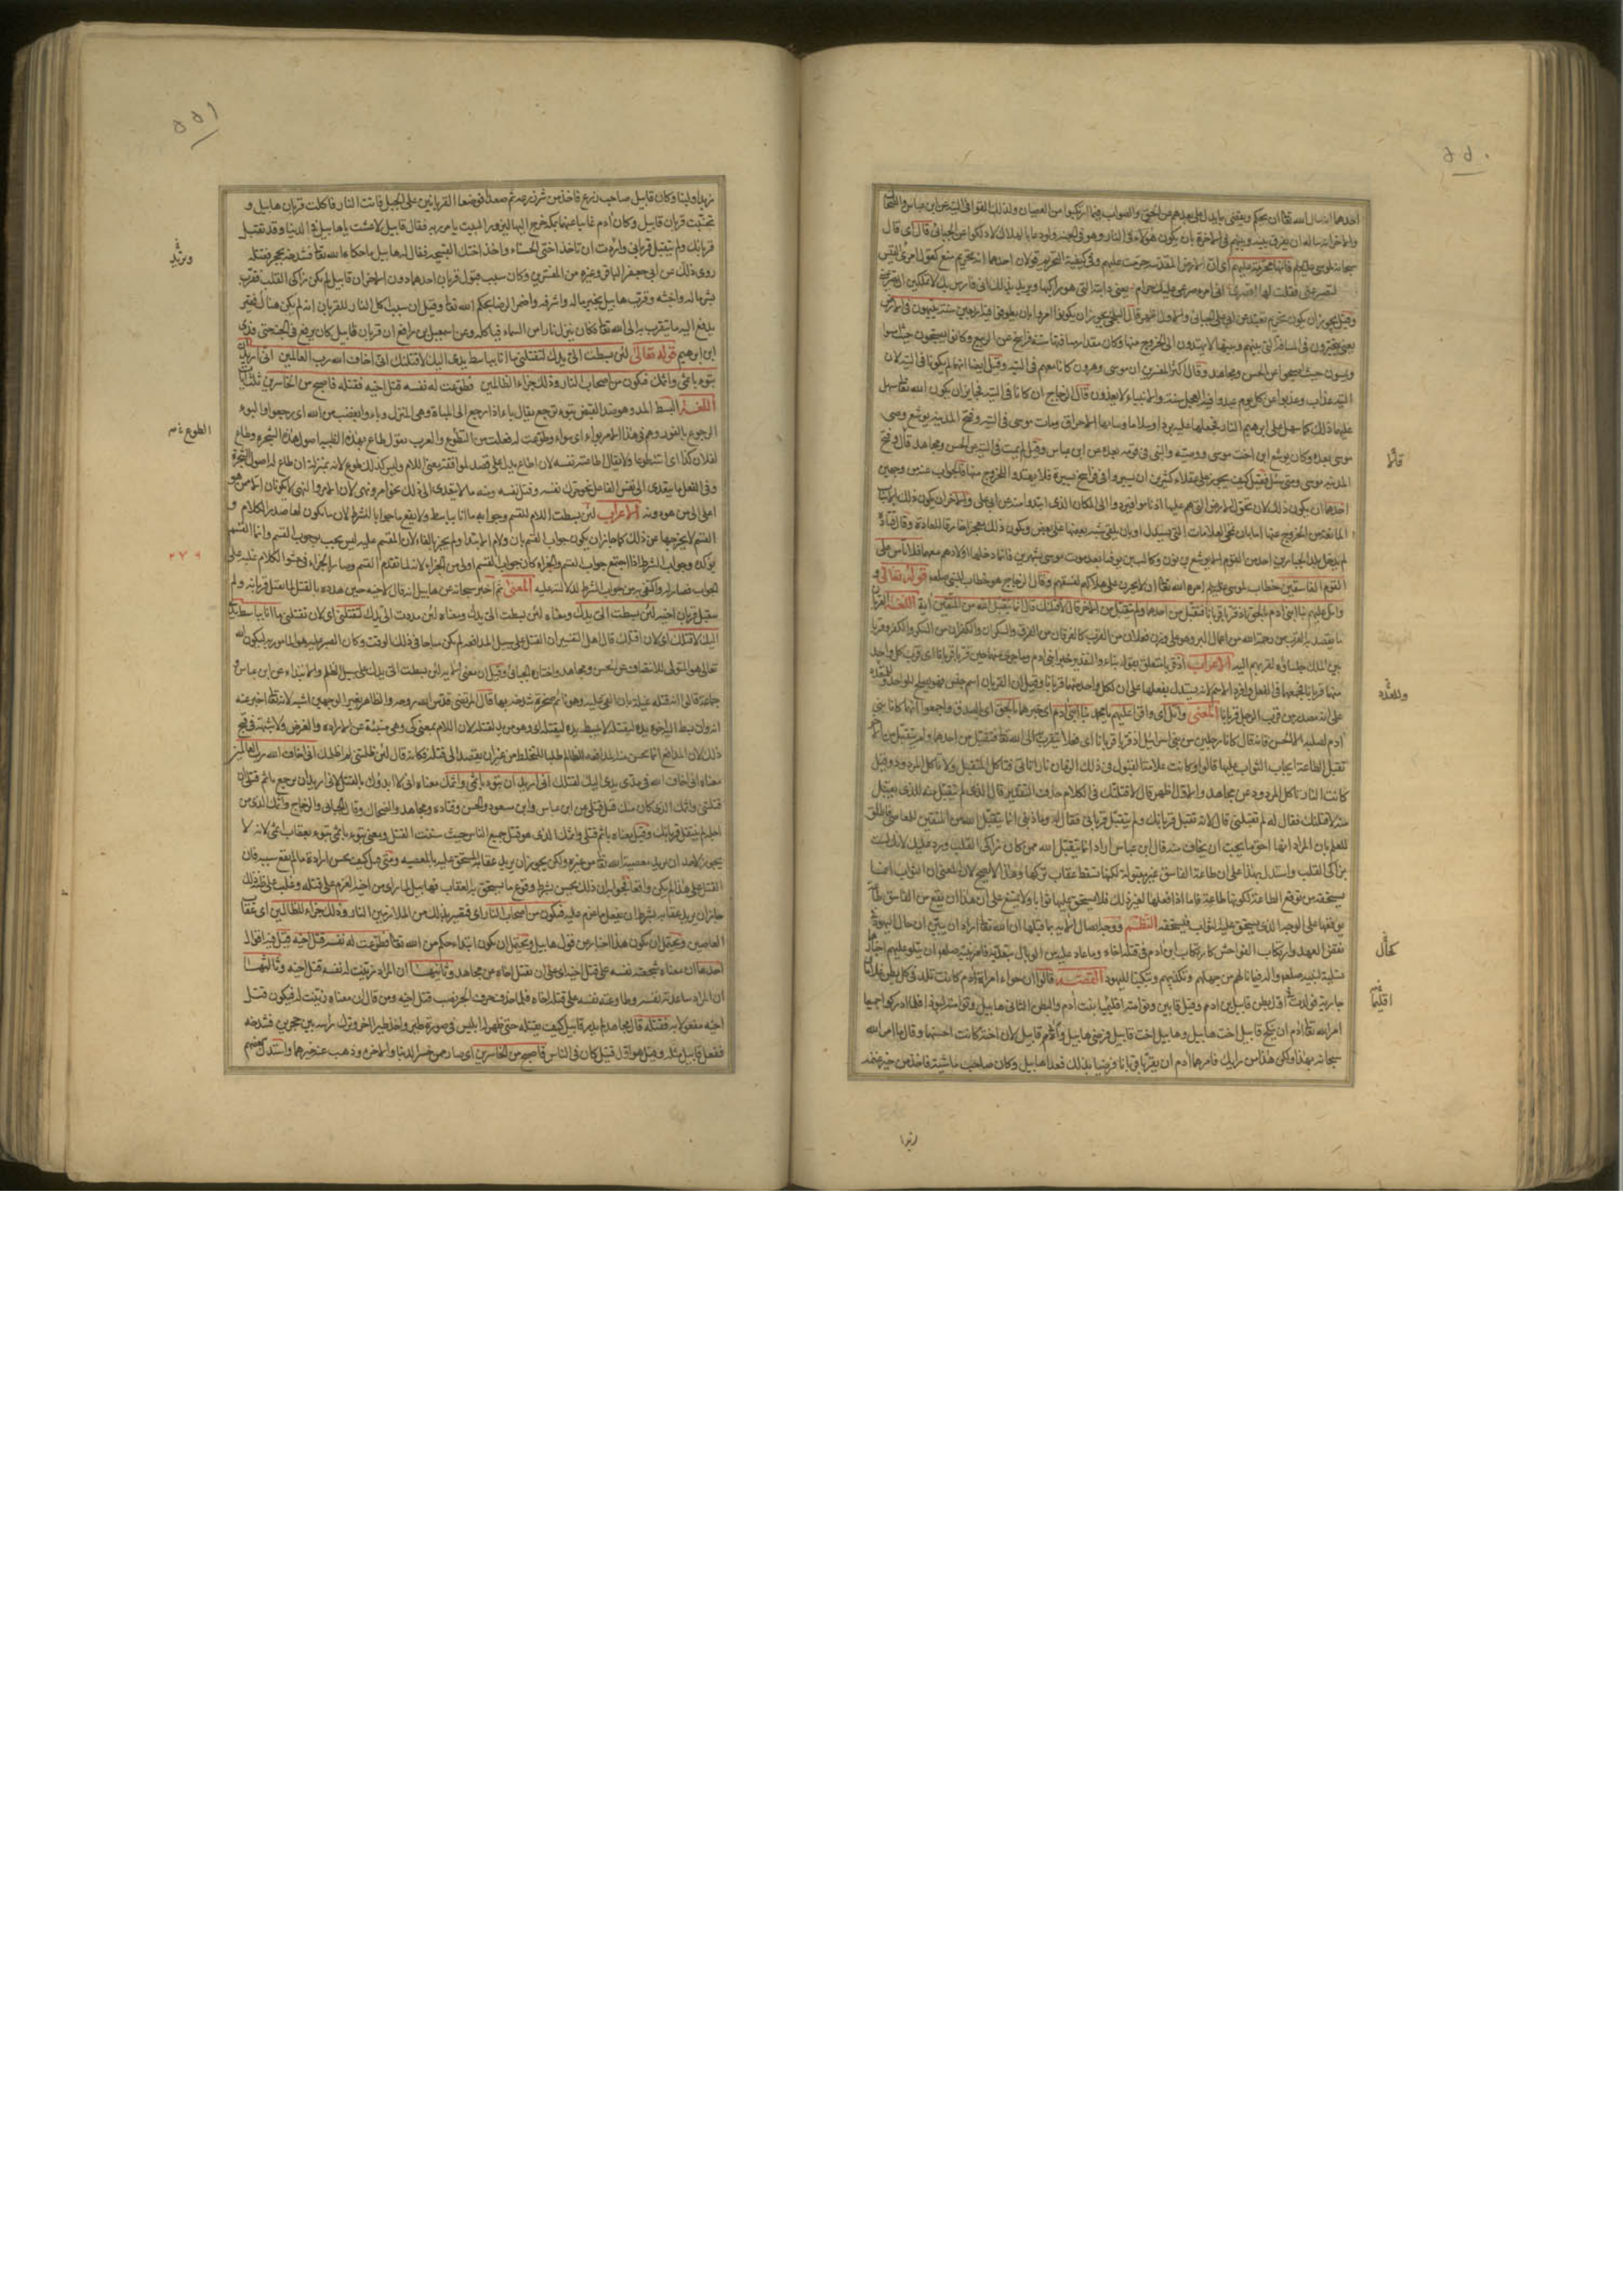 ٥٥٠
احدهما انه سال الله تعالى ان يحكم ويقضي بما يدل على بعدهم عن الحق والصواب فيما ارتكبوا من العصيان ولذلك القوا في التيه عن ابن عباس والضحاك
والاخر انه ساله ان يفرق بينه وبينهم في الاخرة بان يكون هؤلاء في النار وهو في الجنة ولو دعا بالهلاك لاهلكوا عن الجبائي قال اي قال
سبحانه لموسى فانها محرمة عليهم اي ان الارض المقدسة حرمت عليهم وفي كيفية التحريم قولان احدهما انه تحريم منع كقول امرئ القيس
لتصرعني فقلت لها اقصري اني امرؤ صرعي عليك حرام يعني دابته التي هو راكبها ويريد بذلك اني فارس لا تملكين ان تصرعيني
وقيل يجوز ان يكون تحريم تعبد عن ابي علي الجبائي والاول اظهر قال البلخي يجوز ان يكونوا امروا بان يطوفوا فيه اربعين سنة يتيهون في الارض
يعني يتحيرون في المسافة التي بينهم وبينها لا يهتدون الى الخروج منها وكان مقدار مسافتها ستة فراسخ عن الربيع وكانوا يصبحون حيث امسوا
ويمسون حيث اصبحوا عن الحسن ومجاهد وقال اكثر المفسرين ان موسى وهرون كانا معهم في التيه وقيل ايضا انهما لم يكونا في التيه لان
التيه عذاب وعذبوا عن كل يوم عبدوا فيه العجل سنة والانبياء لا يعذبون قال الزجاج ان كانا في التيه فجايز ان يكون الله تعالى سهل
عليهما ذلك كما سهل على ابرهيم النار فجعلها عليه بردا وسلاما وشانها الاحراق ومات موسى في التيه وفتح المدينة يوشع وصي
موسى بعده وكان يوشع ابن اخت موسى ووصيه والنبي في قومه بعده عن ابن عباس وقيل لم يمت في التيه عن الحسن ومجاهد قال وفتح
المدينة موسى ومتى سئل فقيل كيف يجوز على عقلاء كثيرين ان يسيروا في فراسخ يسيرة فلا يهتدوا للخروج منها فالجواب عنه من وجهين
احدهما ان يكون ذلك لان تحول الارض التي هم عليها اذا ناموا فيردوا الى المكان الذي ابتدوا منه عن ابي علي والاخر ان يكون ذلك بالاسباب
المانعة من الخروج عنها اما بان تمحى العلامات التي يستدل بها او بان يلقى شبه بعضها على بعض ويكون ذلك معجزا خارقا للعادة وقال قتادة
لم يدخل بلد الجبارين احد من القوم الا يوشع بن نون وكالب بن يوفنا بعد موت موسى بشهرين فانما دخلها اولادهم معهما فلا تاس على
القوم الفاسقين خطاب لموسى امره الله تعالى ان لا يحزن على هلاكهم لفسقهم وقال الزجاج هو خطاب للنبي صلعم قوله تعالى و
واتل عليهم نبا ابني ادم بالحق اذ قربا قربانا فتقبل من احدهما ولم يتقبل من الاخر قال لاقتلنك قال انما يتقبل الله من المتقين آية اللغة القربان
ما يقصد به القرب من رحمة الله من اعمال البر وهو على وزن فعلان من القرب كالفرقان من الفرق والشكران والكفران من الشكر والكفر وقربا
بين الملك جلساؤه لقربهم اليه الاعراب اذ قربا متعلق بقوله نبا والتقدير خبر ابني ادم وما جرى منهما حين قربا قربانا اي قرب كل واحد
منهما قربانا فجمعهما في الفعل وافرد الاسم لانه يستدل بفعلهما على ان لكل واحد منهما قربانا وقيل ان القربان اسم جنس فهو يصلح للواحد وللعدد
على انه مصدر من قرب الرجل قربانا المعنى واتل اي واقرا عليهم يا محمد نبا ابني ادم اي خبرهما بالحق اي بالصدق واجمعوا انهما كانا ابني
ادم لصلبه الا الحسن فانه قال كانا رجلين من بني اسرائيل اذ قربا قربانا اي فعلا فعلا يتقرب الى الله تعالى فتقبل من احدهما ولم يتقبل من الاخر
تقبل الطاعة ايجاب الثواب عليها قالوا وكانت علامة القبول في ذلك الزمان نار تاتي فتاكل المتقبل ولا تاكل المردود وقيل
كانت النار تاكل المردود عن مجاهد والاول اظهر قال لاقتلنك في الكلام حذف التقدير قال الذي لم يتقبل منه للذي يقبل
منه لاقتلنك فقال له لم تقتلني قال لانه تقبل قربانك ولم يتقبل قرباني فقال له وما ذنبي انما يتقبل الله من المتقين للمعاصي فاطلق
للعلم بان المراد انها احق ما يجب ان يخاف منه قال ابن عباس اراد انما يتقبل الله ممن كان زاكي القلب ورد عليك لانك لست
بزاكي القلب واستدل بهذا على ان طاعة الفاسق غير مقبولة لكنها تسقط عقاب تركها وهذا لا يصح لان المعنى ان الثواب انما
يستحقه من يوقع الطاعة لكونها طاعة فاما اذا فعلها لغير ذلك فلا يستحق عليها ثوابا ولا يمتنع على ان هذا ان يقع من الفاسق طاعة
يوقعها على الوجه الذي يستحق عليه الثواب فيستحقه النظم ووجه اتصال الآية بما قبلها ان الله تعالى اراد ان يبين ان حال اليهود في
نقض العهد وارتكاب الفواحش كارتكاب ابن ادم في قتله اخاه وما عاد عليه من الوبال بتعديه فامر نبيه صلعم ان يتلو عليهم اخبارهما
تسلية لنبيه صلعم والد فيما ناله من جهلهم وتكذيبهم وتبكيتا لليهود القصة قالوا ان حواء امراة ادم كانت تلد في كل بطن غلاما و
جارية فولدت اول بطن قابيل بن ادم وقيل قابين وتوامته اقليما بنت ادم والبطن الثاني هابيل وتوامته لبوذا فلما ادركوا جميعا
امر الله تعالى ادم ان ينكح قابيل اخت هابيل وهابيل اخت قابيل فرضي هابيل وابى قابيل لان اخته كانت احسنهما وقال ما امر الله
سبحانه بهذا ولكن هذا من رايك فامرهما ادم ان يقربا قربانا فرضيا بذلك فعدا هابيل وكان صاحب ماشية فاخذ من خير غنمه
زبدا
قائما
وللعدد
كحال
اقليما
٥٥١
زبدا ولبنا وكان قابيل صاحب زرع فاخذ من شر زرعه ثم صعدا فوضعا القربانين على الجبل فاتت النار فاكلت قربان هابيل و
تجنبت قربان قابيل وكان ادم غايبا عنهما بمكة خرج اليها ليزور البيت بامر ربه فقال قابيل لا عشت يا هابيل في الدنيا وقد تقبل
قربانك ولم يتقبل قرباني وتريد ان تاخذ اختي الحسناء واخذ اختك القبيحة فقال له هابيل ما حكاه الله تعالى فشدخه بحجر فقتله
روي ذلك عن ابي جعفر الباقر وغيره من المفسرين وكان سبب قبول قربان احدهما دون الاخر ان قابيل لم يكن زاكي القلب فقرب
بشر ماله واخسه وقرب هابيل بخير ماله واشرفه واضمر الرضا بحكم الله تعالى وقيل ان سبب اكل النار للقربان انه لم يكن هناك فقير
يدفع اليه ما يتقرب به الى الله تعالى فكان ينزل نار من السماء فياكله وعن اسمعيل بن رافع ان قربان هابيل كان يرتع في الجنة حتى فدي
ابن ابرهيم قوله تعالى لئن بسطت الي يدك لتقتلني ما انا بباسط يدي اليك لاقتلك اني اخاف الله رب العالمين اني اريد ان
تبوء باثمي واثمك فتكون من اصحاب النار وذلك جزاء الظالمين فطوعت له نفسه قتل اخيه فقتله فاصبح من الخاسرين ثلث آيات
اللغة البسط المد وهو ضد القبض تبوء ترجع يقال باء اذا رجع الى المباءة وهي المنزل وباءوا بغضب من الله اي رجعوا والبوء
الرجوع بالقود وهم في هذا الامر بواء اي سواء وطوعت له فعلت من الطوع والعرب تقول طاع لهذه الظبية اصول هذه الشجرة وطاع
لفلان كذا اي اتاه طوعا ولا يقال اطاعته نفسه لان اطاع يدل على قصد لموافقة معنى الامر وليس كذلك طوع لانه بمنزلة انطاع له اصول الشجرة
وفي الفعل ما يتعدى الى نفس الفاعل نحو حرك نفسه وقتل نفسه ومنه ما لا يتعدى الى ذلك نحو امر ونهى لان الامر والنهي لا يكونان الا من هو
اعلى الى من هو دونه الاعراب لئن بسطت اللام للقسم وجوابه ما انا بباسط ولا يقع ما جوابا للشرط لان ما يكون لها صدر الكلام و
القسم لا يخرجها عن ذلك كما جاز ان يكون جواب القسم بان ولام الابتدا ولم يجز بالفاء لان المقسم عليه ليس يجب بوجوب القسم وانما القسم
يؤكده وجواب الشرط اذا اجتمع جواب القسم والجزاء كان جواب القسم اولى من الجزاء لانه لما تقدم القسم وصار الجزاء في حشو الكلام غلب على
الجواب فصار له واكتفى به من جواب الشرط لدلالته عليه المعنى ثم اخبر سبحانه عن هابيل انه قال لاخيه حين هدده بالقتل لما تقبل قربانه ولم
يتقبل قربان اخيه لئن بسطت الي يدك ومعناه لئن مددت الي يدك لتقتلني اي لان تقتلني ما انا بباسط يدي
اليك لاقتلك اي لان اقتلك قال اهل التفسير ان القتل على سبيل المدافعة لم يكن مباحا في ذلك الوقت وكان الصبر عليه هو المامور به ليكون الله
تعالى هو المتولي للانتصاف عن الحسن ومجاهد واختاره الجبائي وقيل ان معنى الآية لئن بسطت الي يدك على سبيل الظلم والابتداء عن ابن عباس و
جماعة قالوا انه قتله غيلة بان القى عليه وهو نائم صخرة شدخه بها قال المرتضى قدس الله روحه والظاهر بغير الوجهين اشبه لانه تعالى اخبر عنه
انه وان بسط اليه اخوه يده ليقتله لا يبسط يده ليقتله اي وهو مريد لقتله لان اللام بمعنى كي وهي منبئة عن الارادة والغرض ولا شبهة في قبح
ذلك لان المدافع انما يحسن منه المدافعة للظالم طلبا للتخلص من غير ان يقصد الى قتله فكانه قال لئن ظلمتني لم اظلمك اني اخاف الله رب العالمين
معناه اني اخاف الله في مدي يدي اليك لقتلك اني اريد ان تبوء باثمي واثمك معناه اني لا ابدؤك بالقتل لاني اريد ان ترجع باثم قتلي ان
قتلتني واثمك الذي كان منك قبل قتلي عن ابن عباس وابن مسعود والحسن وقتادة ومجاهد والضحاك وقال الجبائي والزجاج واثمك الذي من
اجله لم يتقبل قربانك وقيل معناه باثم قتلي واثمك الذي هو قتل جميع الناس حيث سننت القتل ومعنى تبوء باثمي تبوء بعقاب اثمي لانه لا
يجوز لاحد ان يريد معصية الله تعالى من غيره ولكن يجوز ان يريد عقابه المستحق عليه بالمعصية ومتى قيل كيف يحسن ارادة ما لم يقع سببه فان
القتل على هذا لم يكن واقعا فجوابه ان ذلك يحسن بشرط وقوع ما يستحق به العقاب فهابيل لما راى من اخيه العزم على قتله وغلب على ظنه ذلك
جاز ان يريد عقابه بشرط ان يفعل ما عزم عليه فتكون من اصحاب النار اي فتصير بذلك من الملازمين النار وذلك جزاء الظالمين اي عقاب
العاصين ويحتمل ان يكون هذا اخبارا من قول هابيل ويحتمل ان يكون ابتداء حكم من الله تعالى فطوعت له نفسه قتل اخيه قيل فيه اقوال
احدها ان معناه شجعته نفسه على قتل اخيه اي على ان يقتل اخاه عن مجاهد وثانيها ان المراد زينت له نفسه قتل اخيه وثالثها
ان المراد ساعدته نفسه وطاوعته نفسه على قتل اخاه فلما حذف حرف الجر نصب قتل اخيه ومن قال ان معناه زينت له فيكون قتل
اخيه مفعولا به فقتله قال مجاهد لم يدر قابيل كيف يقتله حتى ظهر له ابليس في صورة طير واخذ طيرا اخر وترك راسه بين حجرين فشدخه
ففعل قابيل مثله وقيل هو اول قتيل كان في الناس فاصبح من الخاسرين اي صار ممن خسر الدنيا والاخرة وذهب عنه خيرهما واستدل بعضهم
وتريد
الطوع
٢٧٩